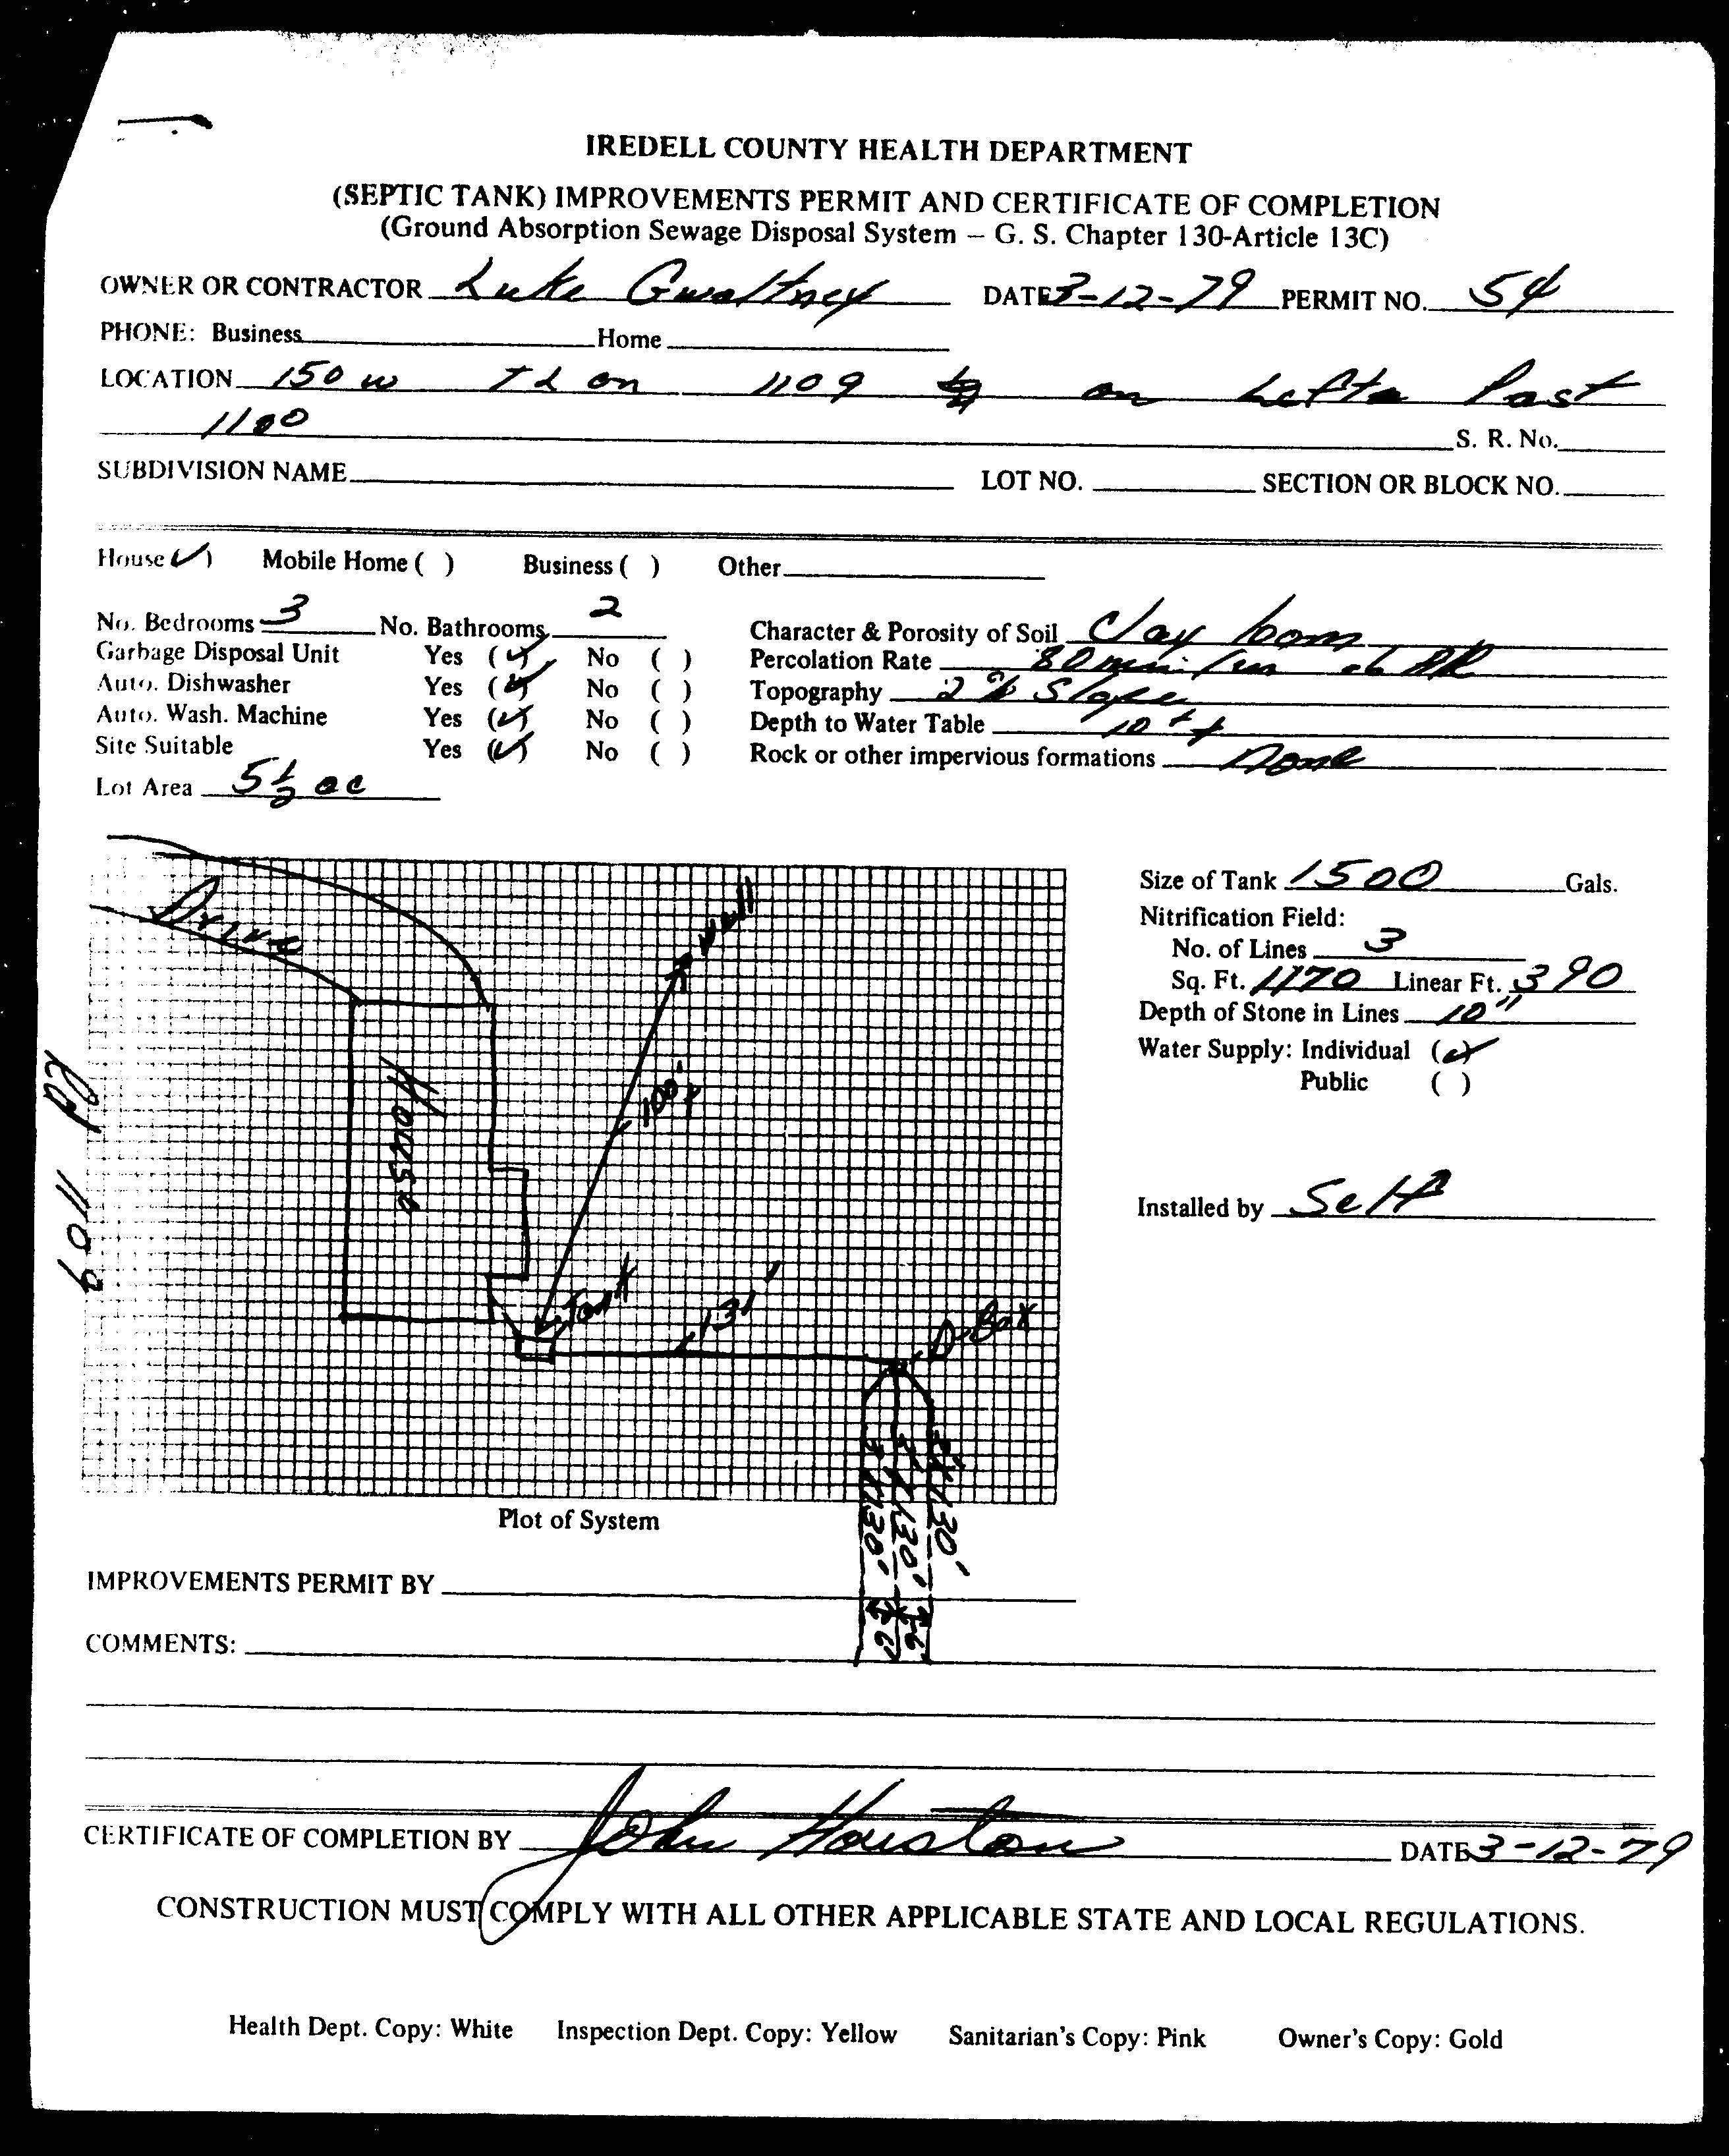 IREDELL COUNTY HEALTH DEPARTMENT
(SEPTIC TANK) IMPROVEMENTS PERMIT AND CERTIFICATE OF COMPLETION
(Ground Absorption Sewage Disposal System – G. S. Chapter 130-Article 13C)
OWNER OR CONTRACTOR Luke Gwaltney DATE 3-12-79 PERMIT NO. 54
PHONE: Business Home
LOCATION 150 W TL on 1109 on Left Past
1100 S. R. No.
SUBDIVISION NAME LOT NO. SECTION OR BLOCK NO.
House (✓) Mobile Home ( ) Business ( ) Other
No. Bedrooms 3 No. Bathrooms 2 Character & Porosity of Soil Clay loam
Garbage Disposal Unit Yes (✓) No ( ) Percolation Rate 80 min/in
Auto. Dishwasher Yes (✓) No ( ) Topography 2% Slope
Auto. Wash. Machine Yes (✓) No ( ) Depth to Water Table 10
Site Suitable Yes (✓) No ( ) Rock or other impervious formations None
Lot Area 5½ ac
Size of Tank 1500 Gals.
Nitrification Field:
No. of Lines 3
Sq. Ft. 1170 Linear Ft. 390
Depth of Stone in Lines 10"
Water Supply: Individual (✓)
Public ( )
Installed by Self
Drive
well
100'
House
Rd 1109
Tank
131'
D-Box
3'x130'
3'x130'
3'x130'
6'
6'
Plot of System
IMPROVEMENTS PERMIT BY
COMMENTS:
CERTIFICATE OF COMPLETION BY John Houston DATE 3-12-79
CONSTRUCTION MUST COMPLY WITH ALL OTHER APPLICABLE STATE AND LOCAL REGULATIONS.
Health Dept. Copy: White Inspection Dept. Copy: Yellow Sanitarian's Copy: Pink Owner's Copy: Gold